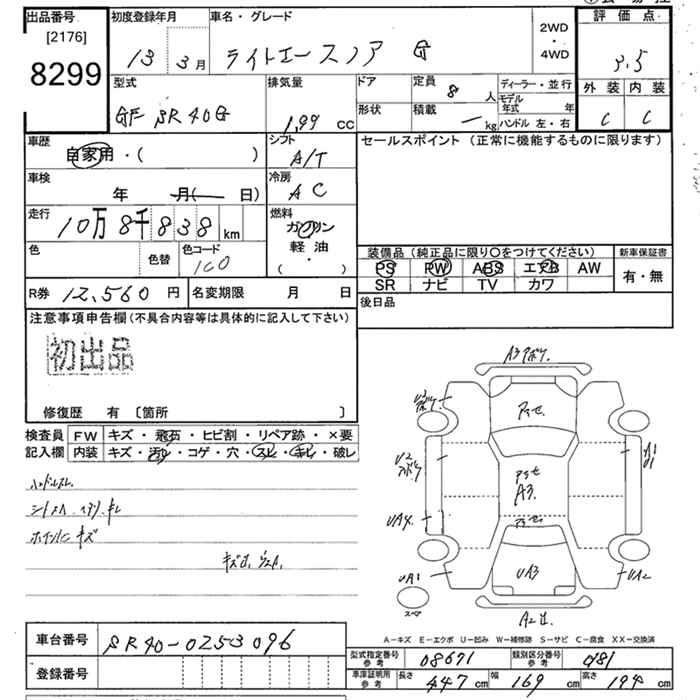 出品番号 初度登録年月 車名・グレード 評価点
[2176] 8299 13年 3月 ライトエースノア G 2WD・4WD 3.5
型式 排気量 ドア 定員 8人 ディーラー・並行 外装 内装
GF SR40G 1,99 CC 形状 積載 ― kg モデル年式 年 ハンドル 左・右 C C
車歴 シフト セールスポイント (正常に機能するものに限ります)
自家用・( ) A/T
車検 冷房
年 月( 日) AC
走行 燃料
10万8千838km ガソリン
軽油
・
( )
色 色替 色コード 装備品 (純正品に限り○をつけてください) 新車保証書
PS PW ABS エアB AW 有・無
SR ナビ TV カワ
R券 12,560円 名変期限 月 日 後日品
注意事項申告欄 (不具合内容等は具体的に記入して下さい)
初出品
修復歴 有 〔箇所 〕
検査員 FW キズ・飛石・ヒビ割・リペア跡・×要
記入欄 内装 キズ・汚れ・コゲ・穴・スレ・キレ・破レ
ハンドルスレ
A3
UA4
UA1 UA3 UA2
スペア
A-キズ E-エクボ U-凹み W-補修跡 S-サビ C-腐食 XX-交換済
車台番号 SR40-0253096
登録番号
型式指定番号 参考 08671 類別区分番号 参考 081
車庫証明用 参考 長さ 447cm 幅 169cm 高さ 194cm